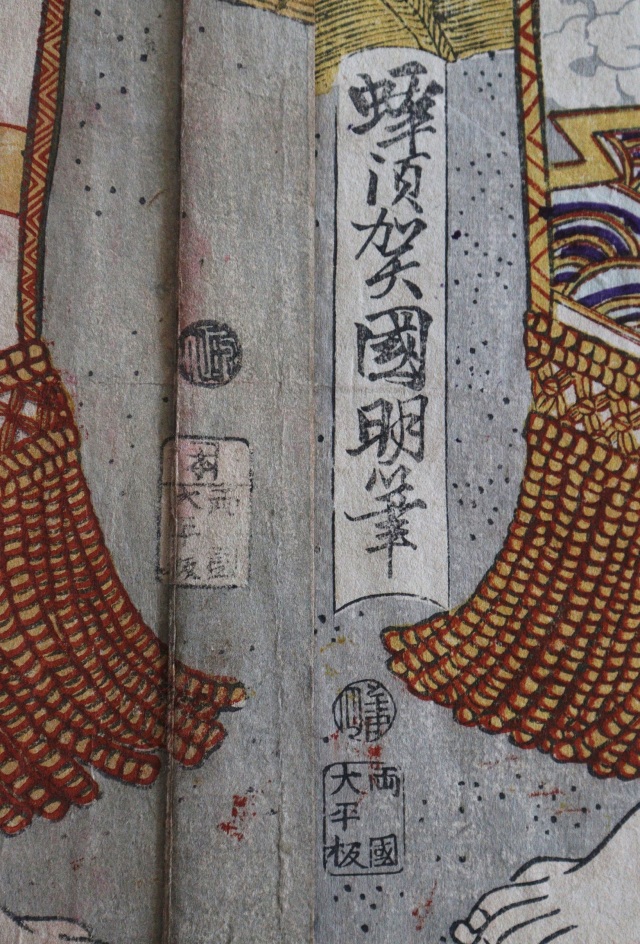 蜂須賀國明筆
両國
大平板
両國
大平板